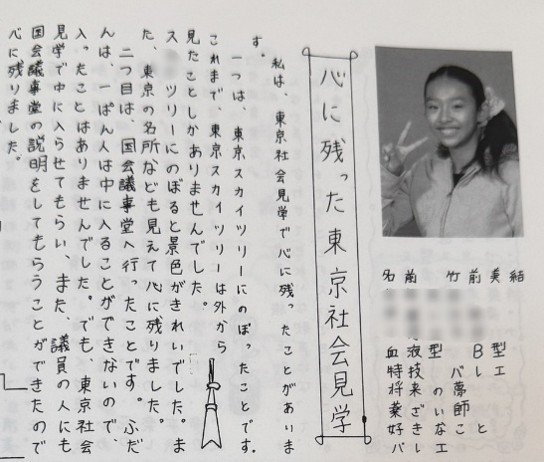 名前 竹前美結
血液型 B型
特技 バレエ
将来の夢
薬ざい師
好きなこと
バレエ
心に残った東京社会見学
私は、東京社会見学で心に残ったことがありま
す。
一つは、東京スカイツリーにのぼったことです。
これまで、東京スカイツリーは外から
見たことしかありませんでした。
ス ツリーにのぼると景色がきれいでした。ま
た、東京の名所なども見えて心に残りました。
二つ目は、国会議事堂へ行ったことです。ふだ
んは、一ぱん人は中に入ることができないので、
入ったことはありませんでした。でも、東京社会
見学で中に入らせてもらい、また、議員の人にも
国会議事堂の説明をしてもらうことができたので
心に残りました。